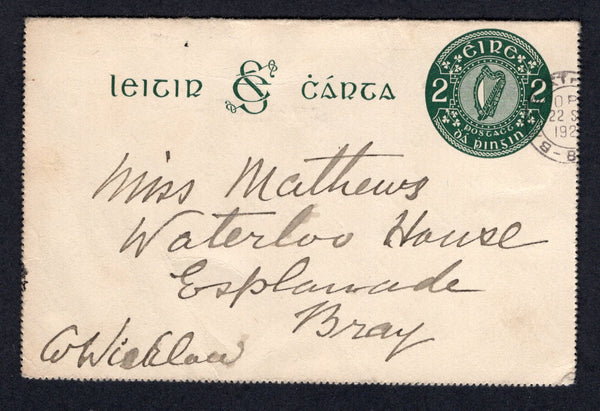 leitir SÉ ċárta
ÉIRE
2 2
POSTAGE
DÁ PINGIN
22 S
192
B
Miss Mathews
Waterloo House
Esplanade
Bray
Co Wicklow